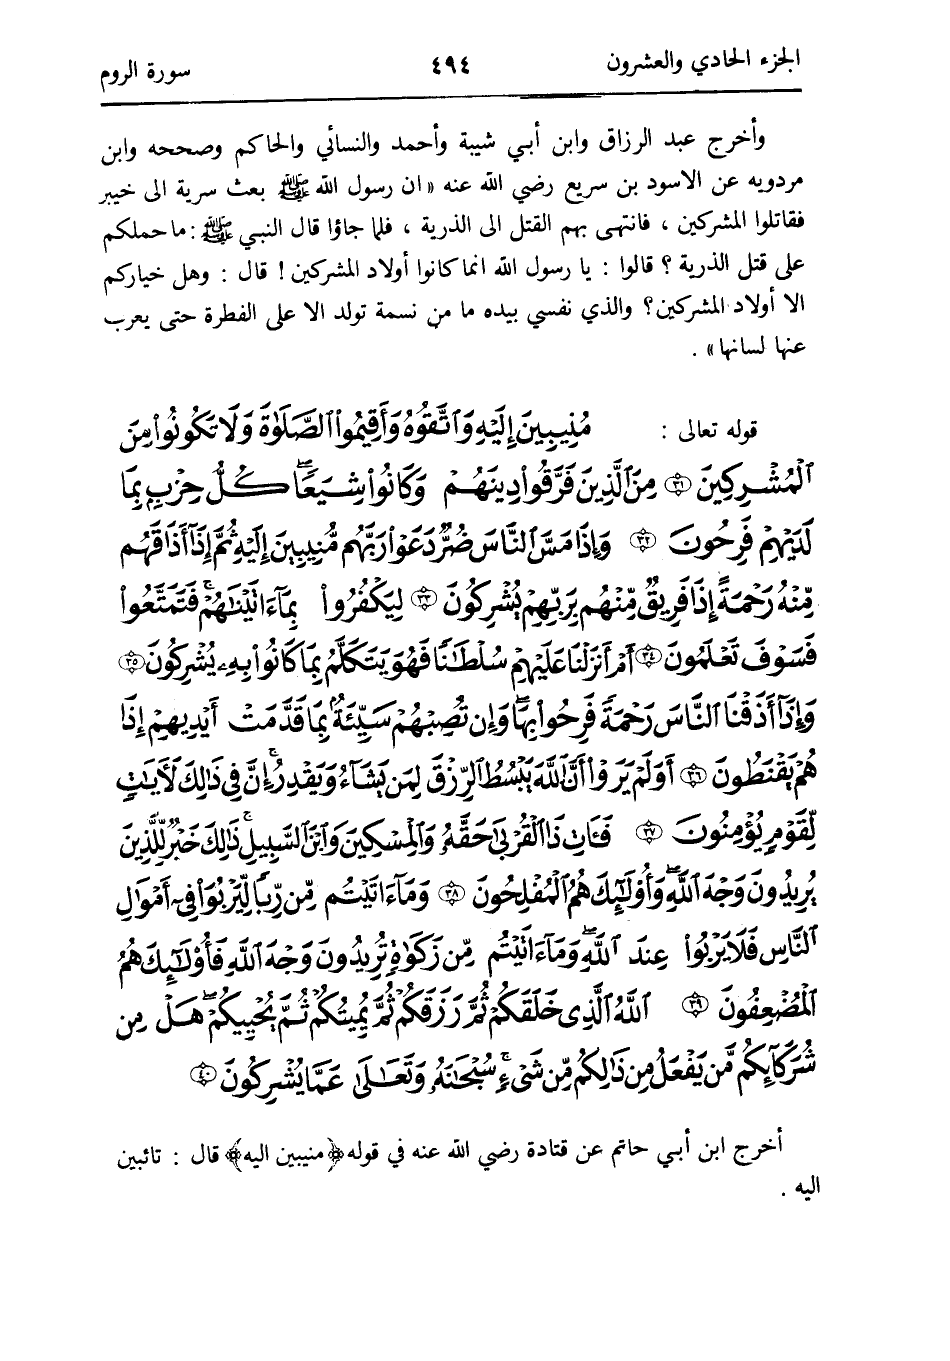 الجزء الحادي والعشرون ٤٩٤ سورة الروم
وأخرج عبد الرزاق وابن أبي شيبة وأحمد والنسائي والحاكم وصححه وابن
مردويه عن الاسود بن سريع رضي الله عنه «ان رسول الله ﷺ بعث سرية الى خيبر
فقاتلوا المشركين ، فانتهى بهم القتل الى الذرية ، فلما جاؤا قال النبي ﷺ : ما حملكم
على قتل الذرية ؟ قالوا : يا رسول الله انما كانوا أولاد المشركين ! قال : وهل خياركم
الا أولاد المشركين؟ والذي نفسي بيده ما من نسمة تولد الا على الفطرة حتى يعرب
عنها لسانها» .
قوله تعالى : مُنِيبِينَ إِلَيْهِ وَٱتَّقُوهُ وَأَقِيمُوا۟ ٱلصَّلَوٰةَ وَلَا تَكُونُوا۟ مِنَ
ٱلْمُشْرِكِينَ ٣١ مِنَ ٱلَّذِينَ فَرَّقُوا۟ دِينَهُمْ وَكَانُوا۟ شِيَعًا ۖ كُلُّ حِزْبٍۭ بِمَا
لَدَيْهِمْ فَرِحُونَ ٣٢ وَإِذَا مَسَّ ٱلنَّاسَ ضُرٌّ دَعَوْا۟ رَبَّهُم مُّنِيبِينَ إِلَيْهِ ثُمَّ إِذَآ أَذَاقَهُم
مِّنْهُ رَحْمَةً إِذَا فَرِيقٌ مِّنْهُم بِرَبِّهِمْ يُشْرِكُونَ ٣٣ لِيَكْفُرُوا۟ بِمَآ ءَاتَيْنَٰهُمْ ۚ فَتَمَتَّعُوا۟
فَسَوْفَ تَعْلَمُونَ ٣٤ أَمْ أَنزَلْنَا عَلَيْهِمْ سُلْطَٰنًا فَهُوَ يَتَكَلَّمُ بِمَا كَانُوا۟ بِهِۦ يُشْرِكُونَ ٣٥
وَإِذَآ أَذَقْنَا ٱلنَّاسَ رَحْمَةً فَرِحُوا۟ بِهَا ۖ وَإِن تُصِبْهُمْ سَيِّئَةٌۢ بِمَا قَدَّمَتْ أَيْدِيهِمْ إِذَا
هُمْ يَقْنَطُونَ ٣٦ أَوَلَمْ يَرَوْا۟ أَنَّ ٱللَّهَ يَبْسُطُ ٱلرِّزْقَ لِمَن يَشَآءُ وَيَقْدِرُ ۚ إِنَّ فِى ذَٰلِكَ لَءَايَٰتٍ
لِّقَوْمٍ يُؤْمِنُونَ ٣٧ فَـَٔاتِ ذَا ٱلْقُرْبَىٰ حَقَّهُۥ وَٱلْمِسْكِينَ وَٱبْنَ ٱلسَّبِيلِ ۚ ذَٰلِكَ خَيْرٌ لِّلَّذِينَ
يُرِيدُونَ وَجْهَ ٱللَّهِ ۖ وَأُو۟لَٰٓئِكَ هُمُ ٱلْمُفْلِحُونَ ٣٨ وَمَآ ءَاتَيْتُم مِّن رِّبًا لِّيَرْبُوَا۟ فِىٓ أَمْوَٰلِ
ٱلنَّاسِ فَلَا يَرْبُوا۟ عِندَ ٱللَّهِ ۖ وَمَآ ءَاتَيْتُم مِّن زَكَوٰةٍ تُرِيدُونَ وَجْهَ ٱللَّهِ فَأُو۟لَٰٓئِكَ هُمُ
ٱلْمُضْعِفُونَ ٣٩ ٱللَّهُ ٱلَّذِى خَلَقَكُمْ ثُمَّ رَزَقَكُمْ ثُمَّ يُمِيتُكُمْ ثُمَّ يُحْيِيكُمْ ۖ هَلْ مِن
شُرَكَآئِكُم مَّن يَفْعَلُ مِن ذَٰلِكُم مِّن شَىْءٍ ۚ سُبْحَٰنَهُۥ وَتَعَٰلَىٰ عَمَّا يُشْرِكُونَ ٤٠
أخرج ابن أبي حاتم عن قتادة رضي الله عنه في قوله ﴿منيبين اليه﴾ قال : تائبين
اليه .